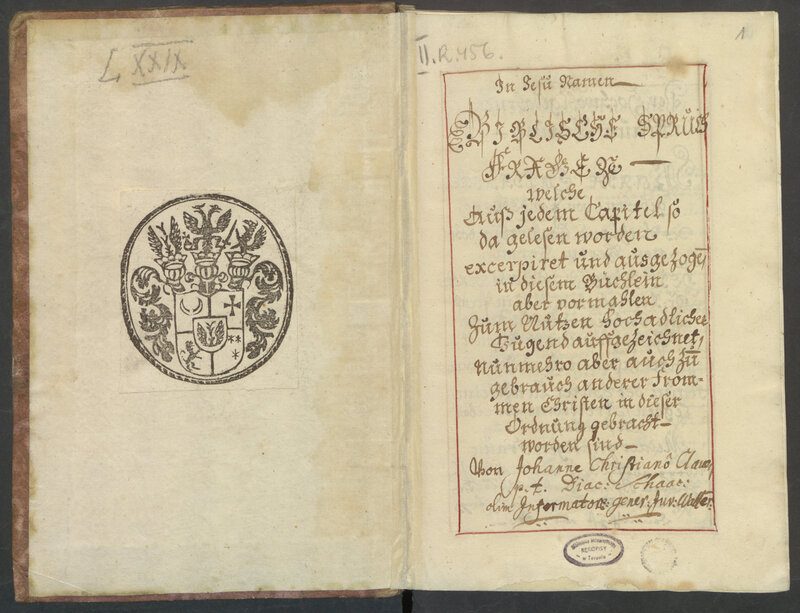 L XXIX
II. R. 456.
1
In Jesu Namen
BIBLISCHE SPRUCH
FRAGEN
welche
Auß jedem Capitel so
da gelesen worden
excerpiret und ausgezogē
in diesem Büchlein
aber vormahlen
Zum Nützen Hochadlicher
Jugend auffgezeichnet,
Nunmehro aber auch zū
gebrauch anderer From-
men Christen in dieser
Ordnung gebracht
worden sind
Von Johanne Christianô
p. t. Diac: Schaac:
olim Informatore gener: Juv:
RĘKOPISY
w Toruniu